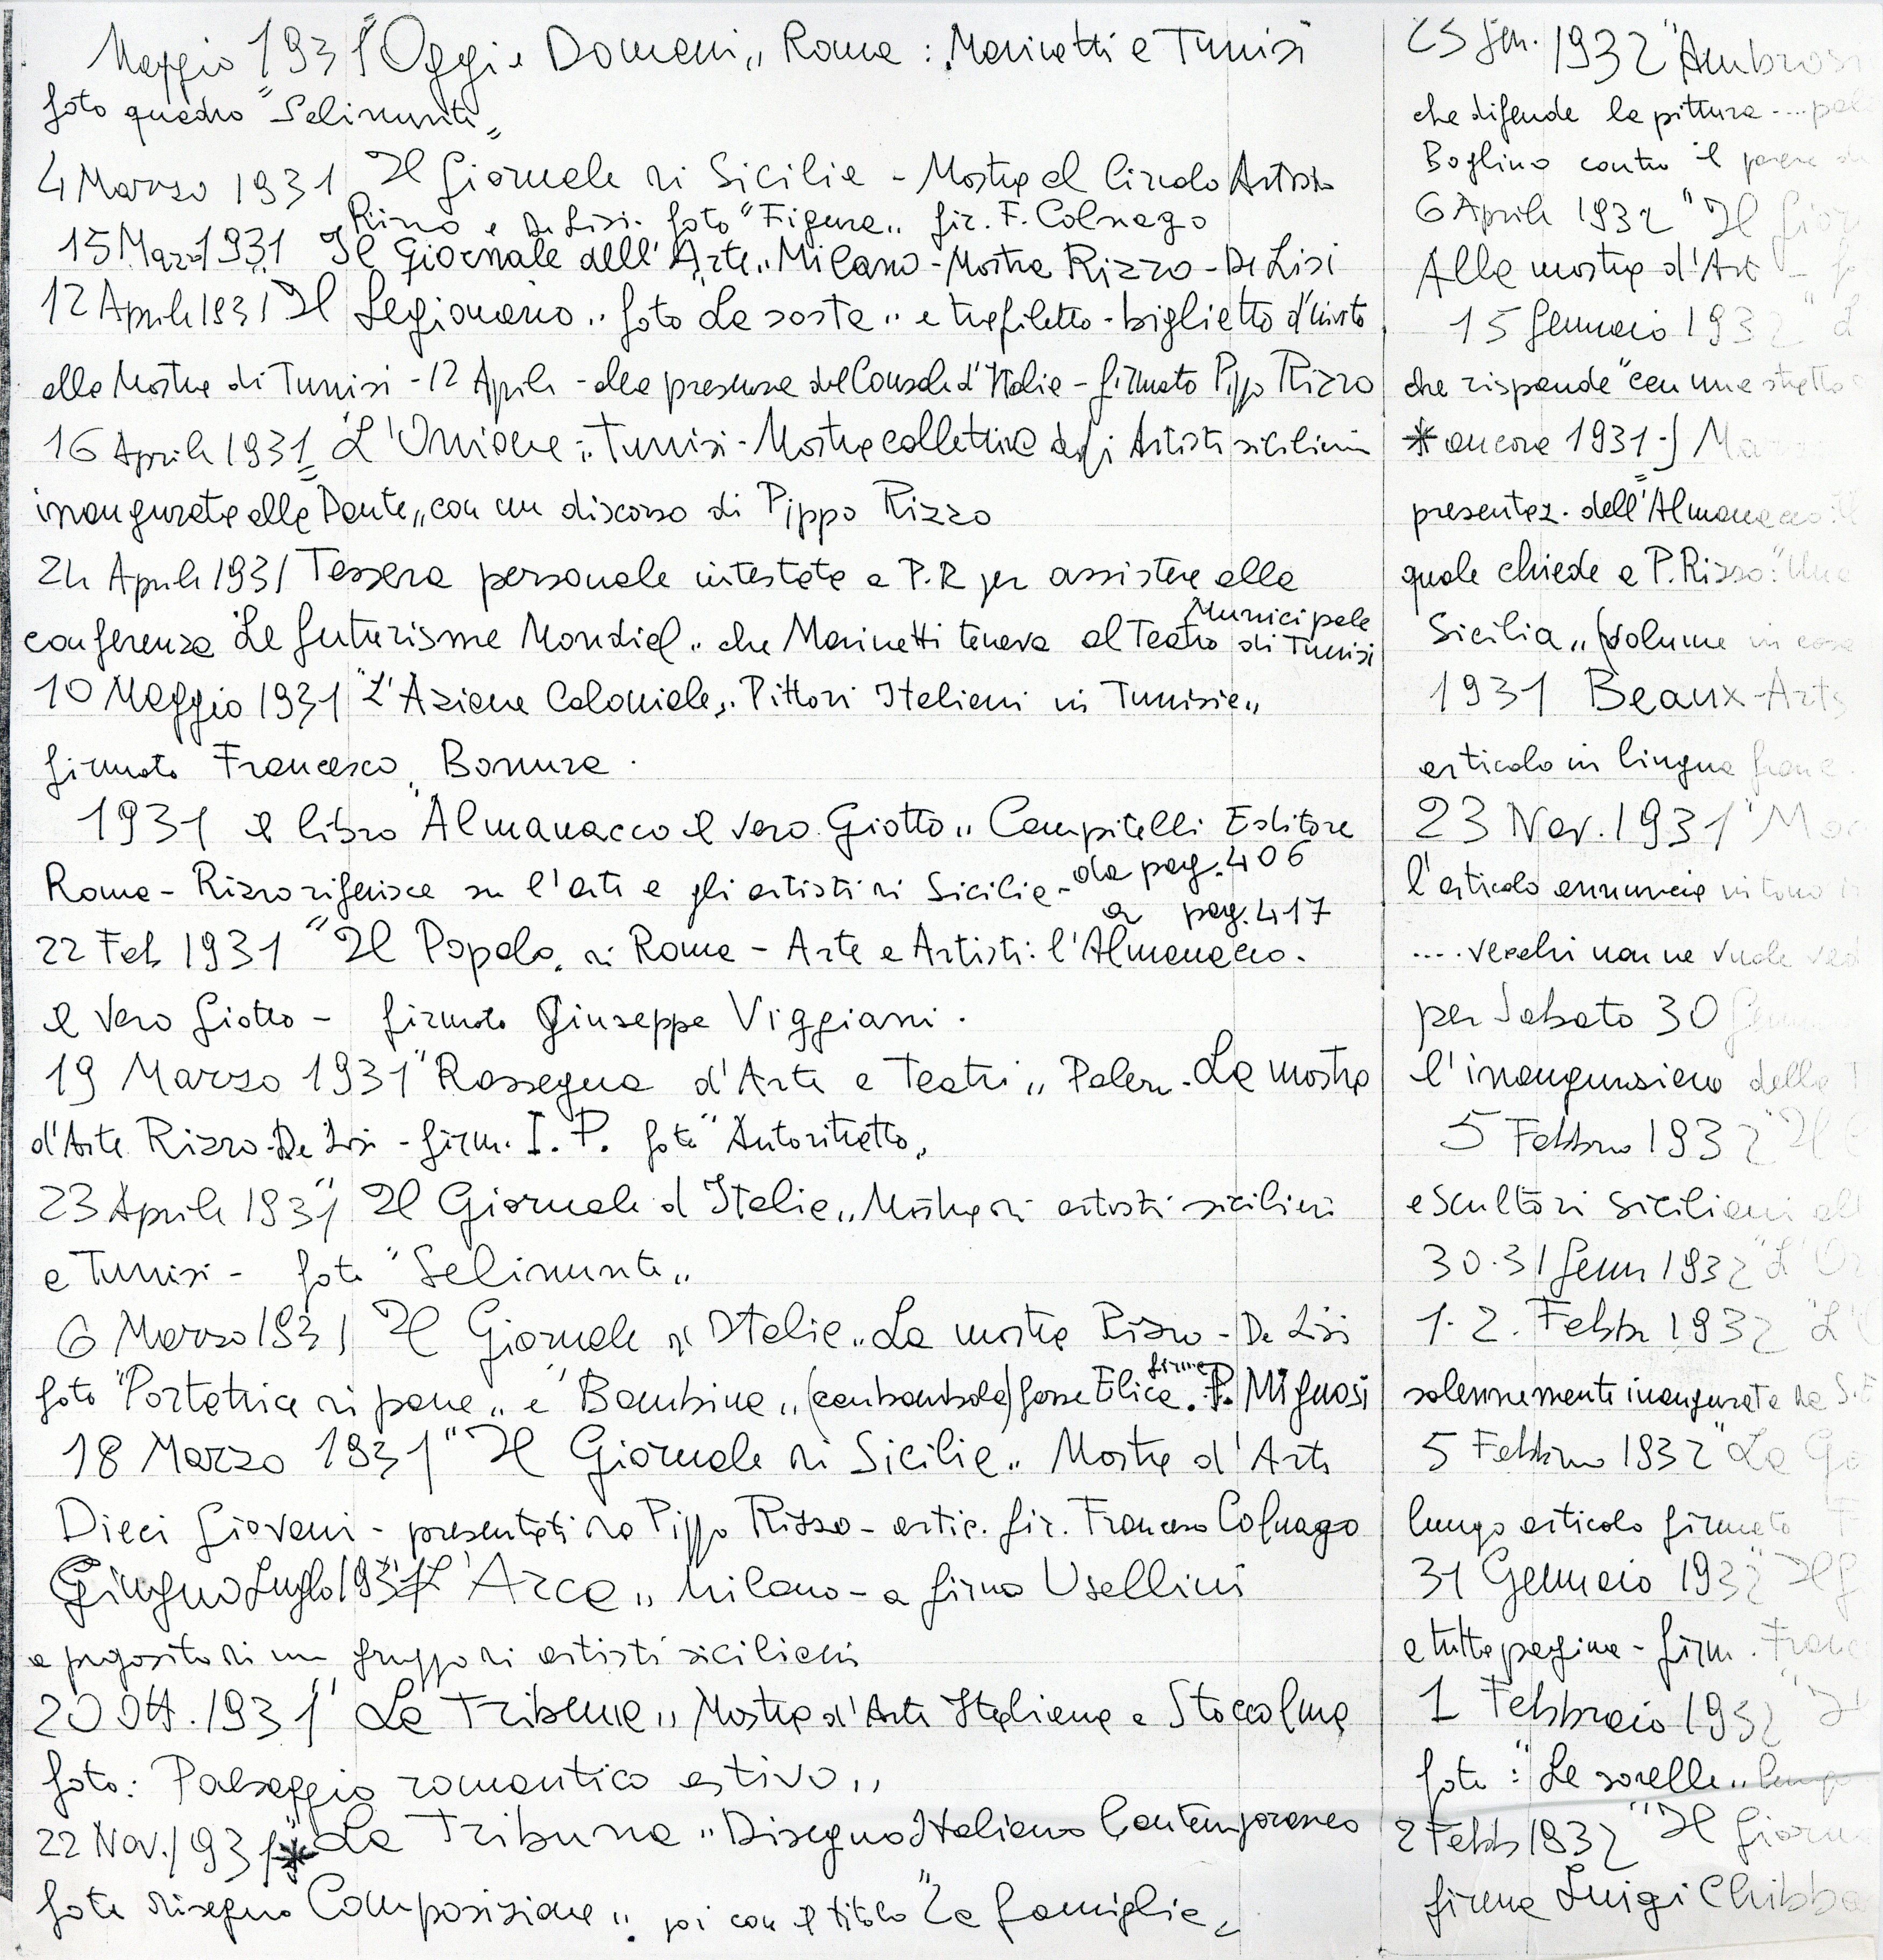 Maggio 1931 "Oggi e Domani" Roma: Marinetti e Tunisi
foto quadro "Selinunte"
4 Marzo 1931 Il Giornale di Sicilia - Mostra al Circolo Artistico
Rizzo e De Lisi. foto "Figura" fir. F. Colnago
15 Marzo 1931 "Il Giornale dell'Arte" Milano - Mostra Rizzo - De Lisi
12 Aprile 1931 "Il Legionario" foto "La sosta" e trafiletto - biglietto d'invito
alla Mostra di Tunisi - 12 Aprile - alla presenza del Console d'Italia - firmato Pippo Rizzo
16 Aprile 1931 "L'Unione" Tunisi - Mostra collettiva degli Artisti siciliani
inaugurata alla "Dante" con un discorso di Pippo Rizzo
24 Aprile 1931 Tessera personale intestata a P.R per assistere alla
conferenza "Le futurisme Mondial" che Marinetti teneva al Teatro Municipale di Tunisi
10 Maggio 1931 "L'Azione Coloniale" Pittori Italiani in Tunisia"
firmato Francesco Bonura.
1931 il libro "Almanacco il vero Giotto" Campitelli Editore
Roma - Rizzo riferisce su l'arte e gli artisti di Sicilia - da pag. 406
a pag. 417
22 Feb 1931 "Il Popolo di Roma - Arte e Artisti: l'Almanacco.
il vero Giotto - firmato Giuseppe Viggiani.
19 Marzo 1931 "Rassegna d'Arte e Teatri" Palerm - La mostra
d'Arte Rizzo - De Lisi - firm. I. P. foto "Autoritratto"
23 Aprile 1931 "Il Giornale d'Italia" Mostra di artisti siciliani
a Tunisi - foto "Selinunte"
6 Marzo 1931 Il Giornale d'Italia" La mostra Rizzo - De Lisi
foto "Portatrice di pane" e "Bambina" (con bambola) forse Elica. firma P. Mignosi
18 Marzo 1931 "Il Giornale di Sicilia" Mostra d'Arte
Dieci Giovani - presentati da Pippo Rizzo - artic. fir. Francesco Colnago
Giugno Luglio 1931 "L'Arca" Milano - a firma Usellini
a proposito di un gruppo di artisti siciliani
20 Ott. 1931 "La Tribuna" Mostra d'Arte Italiana a Stoccolma
foto: Paesaggio romantico estivo"
22 Nov. 1931 * "La Tribuna" Disegno Italiano Contemporaneo
foto disegno Composizione" poi con il titolo "La famiglia"
25 Gen. 1932 "Ambrosi
che difende la pittura ....
Boglino contro il parere
6 Aprile 1932 "Il Gior
Alla mostra d'Arte -
15 Gennaio 1932
che risponde "con una stretta
* ancora 1931
presentaz. dell'"Almanacco
quale chiede a P. Rizzo: "Una
Sicilia" (volume in
1931 Beaux-Arts
articolo in lingua franc.
23 Nov. 1931
l'articolo annuncia
.... vecchi non ne vuole
per Sabato 30
l'inaugurazione della
5 Febbraio 1932 "Il
e Scultori siciliani
30-31 Genn 1932 "L'Or
1-2. Febbr 1932 "L'
solennemente inaugurata da S.E
5 Febbraio 1932 "La
lungo articolo firmato
31 Gennaio 1932
a tutta pagina - firm. Franc
1 Febbraio 1932
foto: "Le sorelle" lungo
2 Febb 1932 "Il Giorn
firma Luigi Chibba